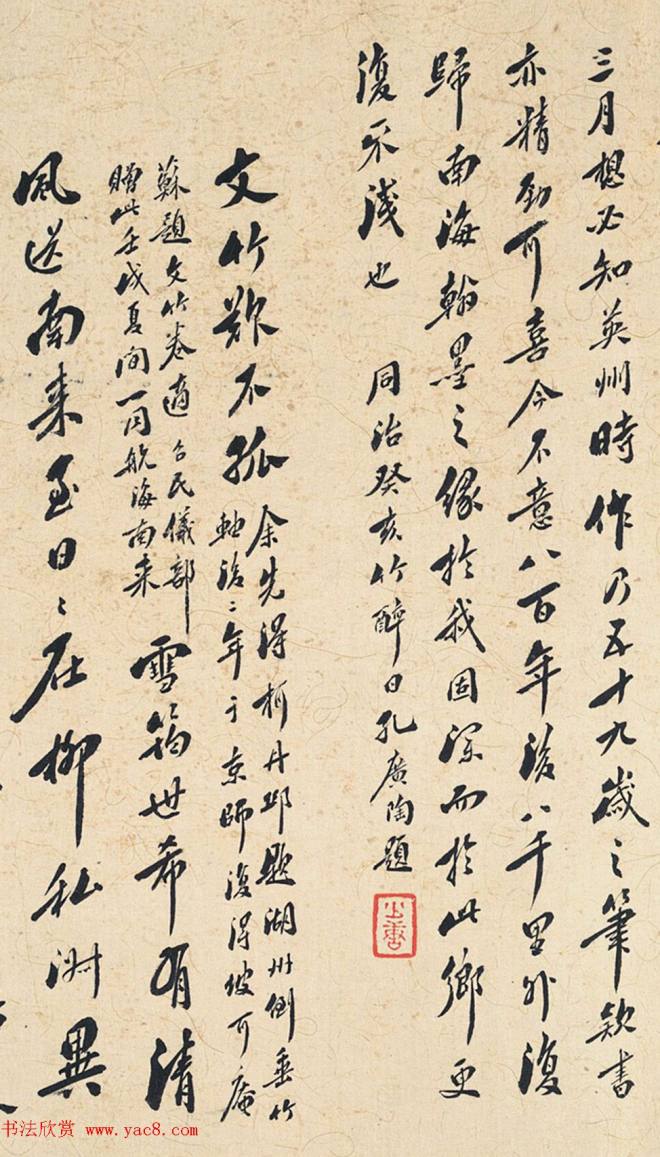 三月想必知英州時作乃五十九歲之筆款書
亦精勁可喜今不意八百年後八千里外復
歸南海翰墨之緣於我固深而於此鄉更
復不淺也 同治癸亥竹醉日孔廣陶題
文竹歡不孤 余先得柯丹邱題湖州倒垂竹
軸後二年于京師復得坡可庵
蘇題文竹卷適 民儀部
贈此壬戌夏間一同航海南來 雪筠世希有清
風送南來至日日在柳私淑異
书法欣赏 www.yac8.com